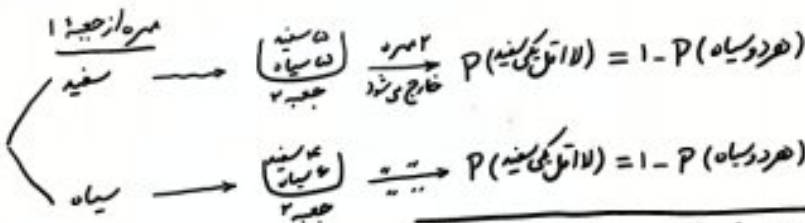 مهره از جعبهٔ ۱
سفید → ۵ سفید ۵ سیاه جعبه ۲ → ۲ مهره خارج می‌شود P(لااقل یکی سفید) = 1 - P(هر دو سیاه)
سیاه → ۴ سفید ۶ سیاه جعبه ۲ → " " P(لااقل یکی سفید) = 1 - P(هر دو سیاه)